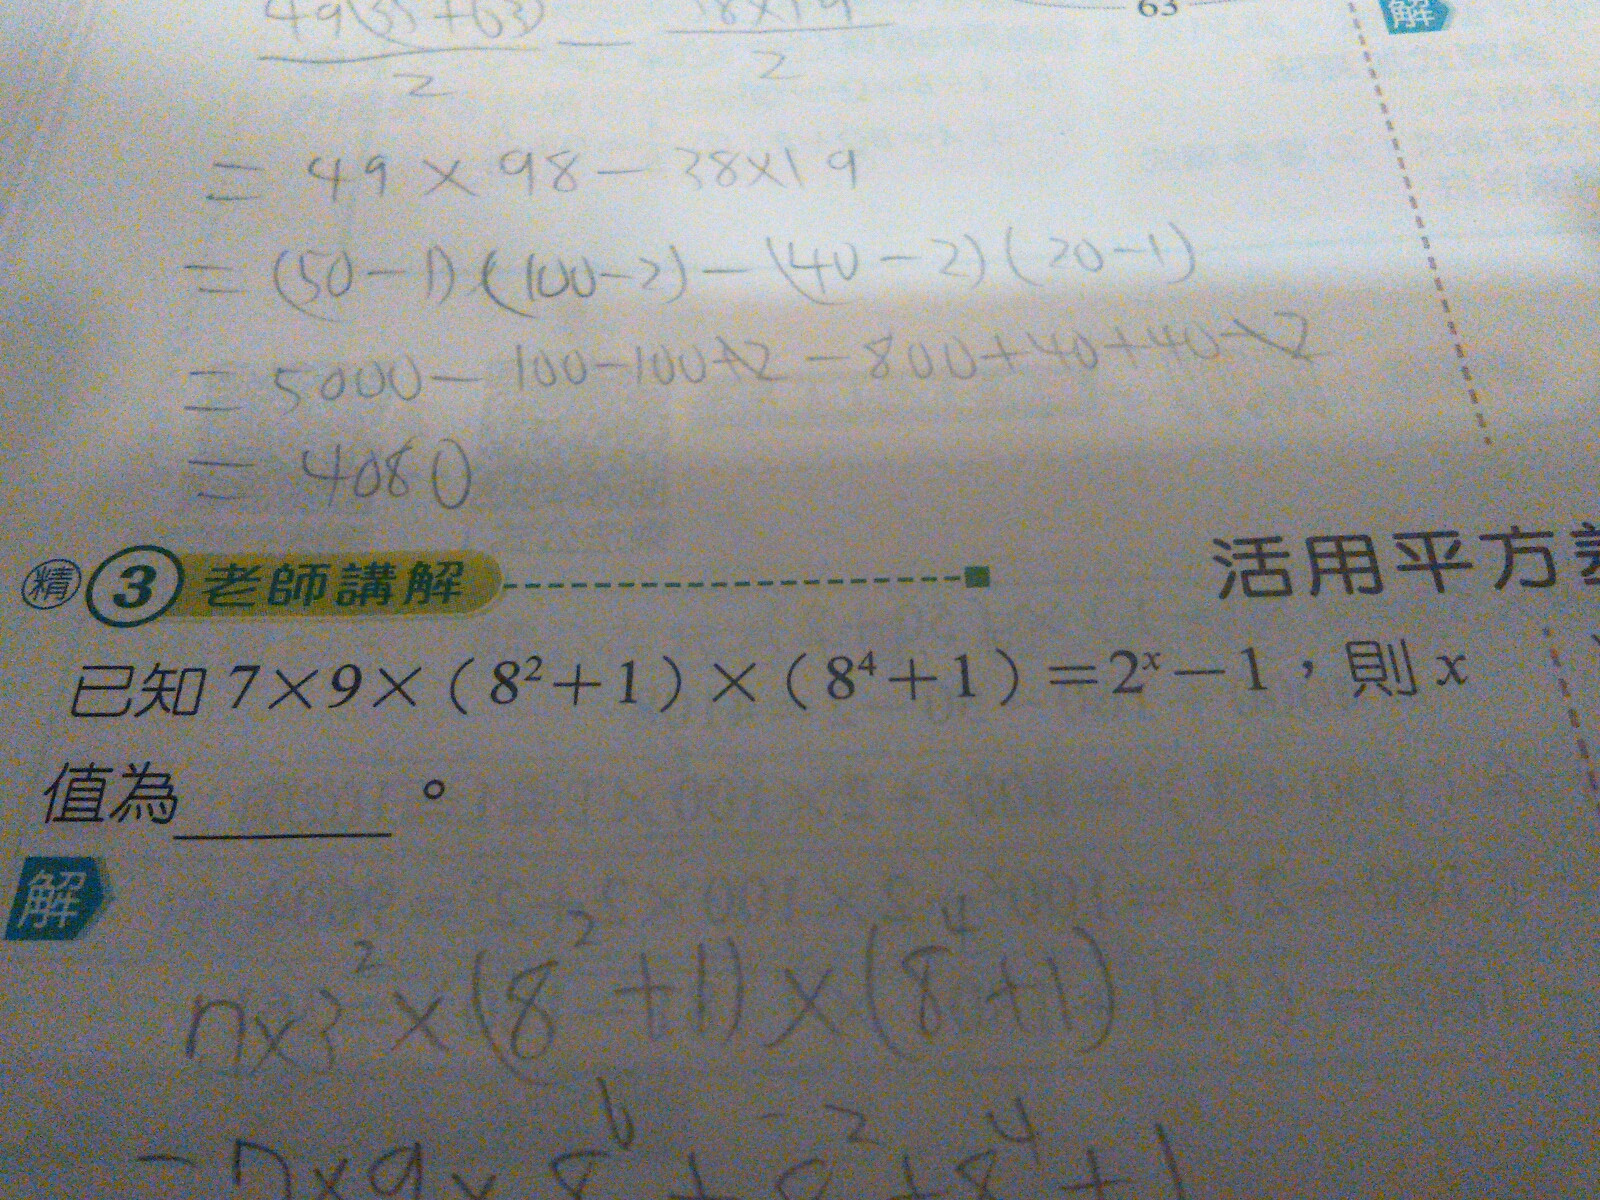 63
解
2
2
= 49 × 98 - 38×19
= (50-1)(100-2)-(40-2)(20-1)
= 5000-100-100+2-800+40+40-2
= 4080
精 3 老師講解 活用平方差
已知 7×9×(8²+1)×(8⁴+1)=2ˣ-1,則 x
值為 。
解
7×3²×(8²+1)×(8⁴+1)
=7×9×8⁶+8²+8⁴+1